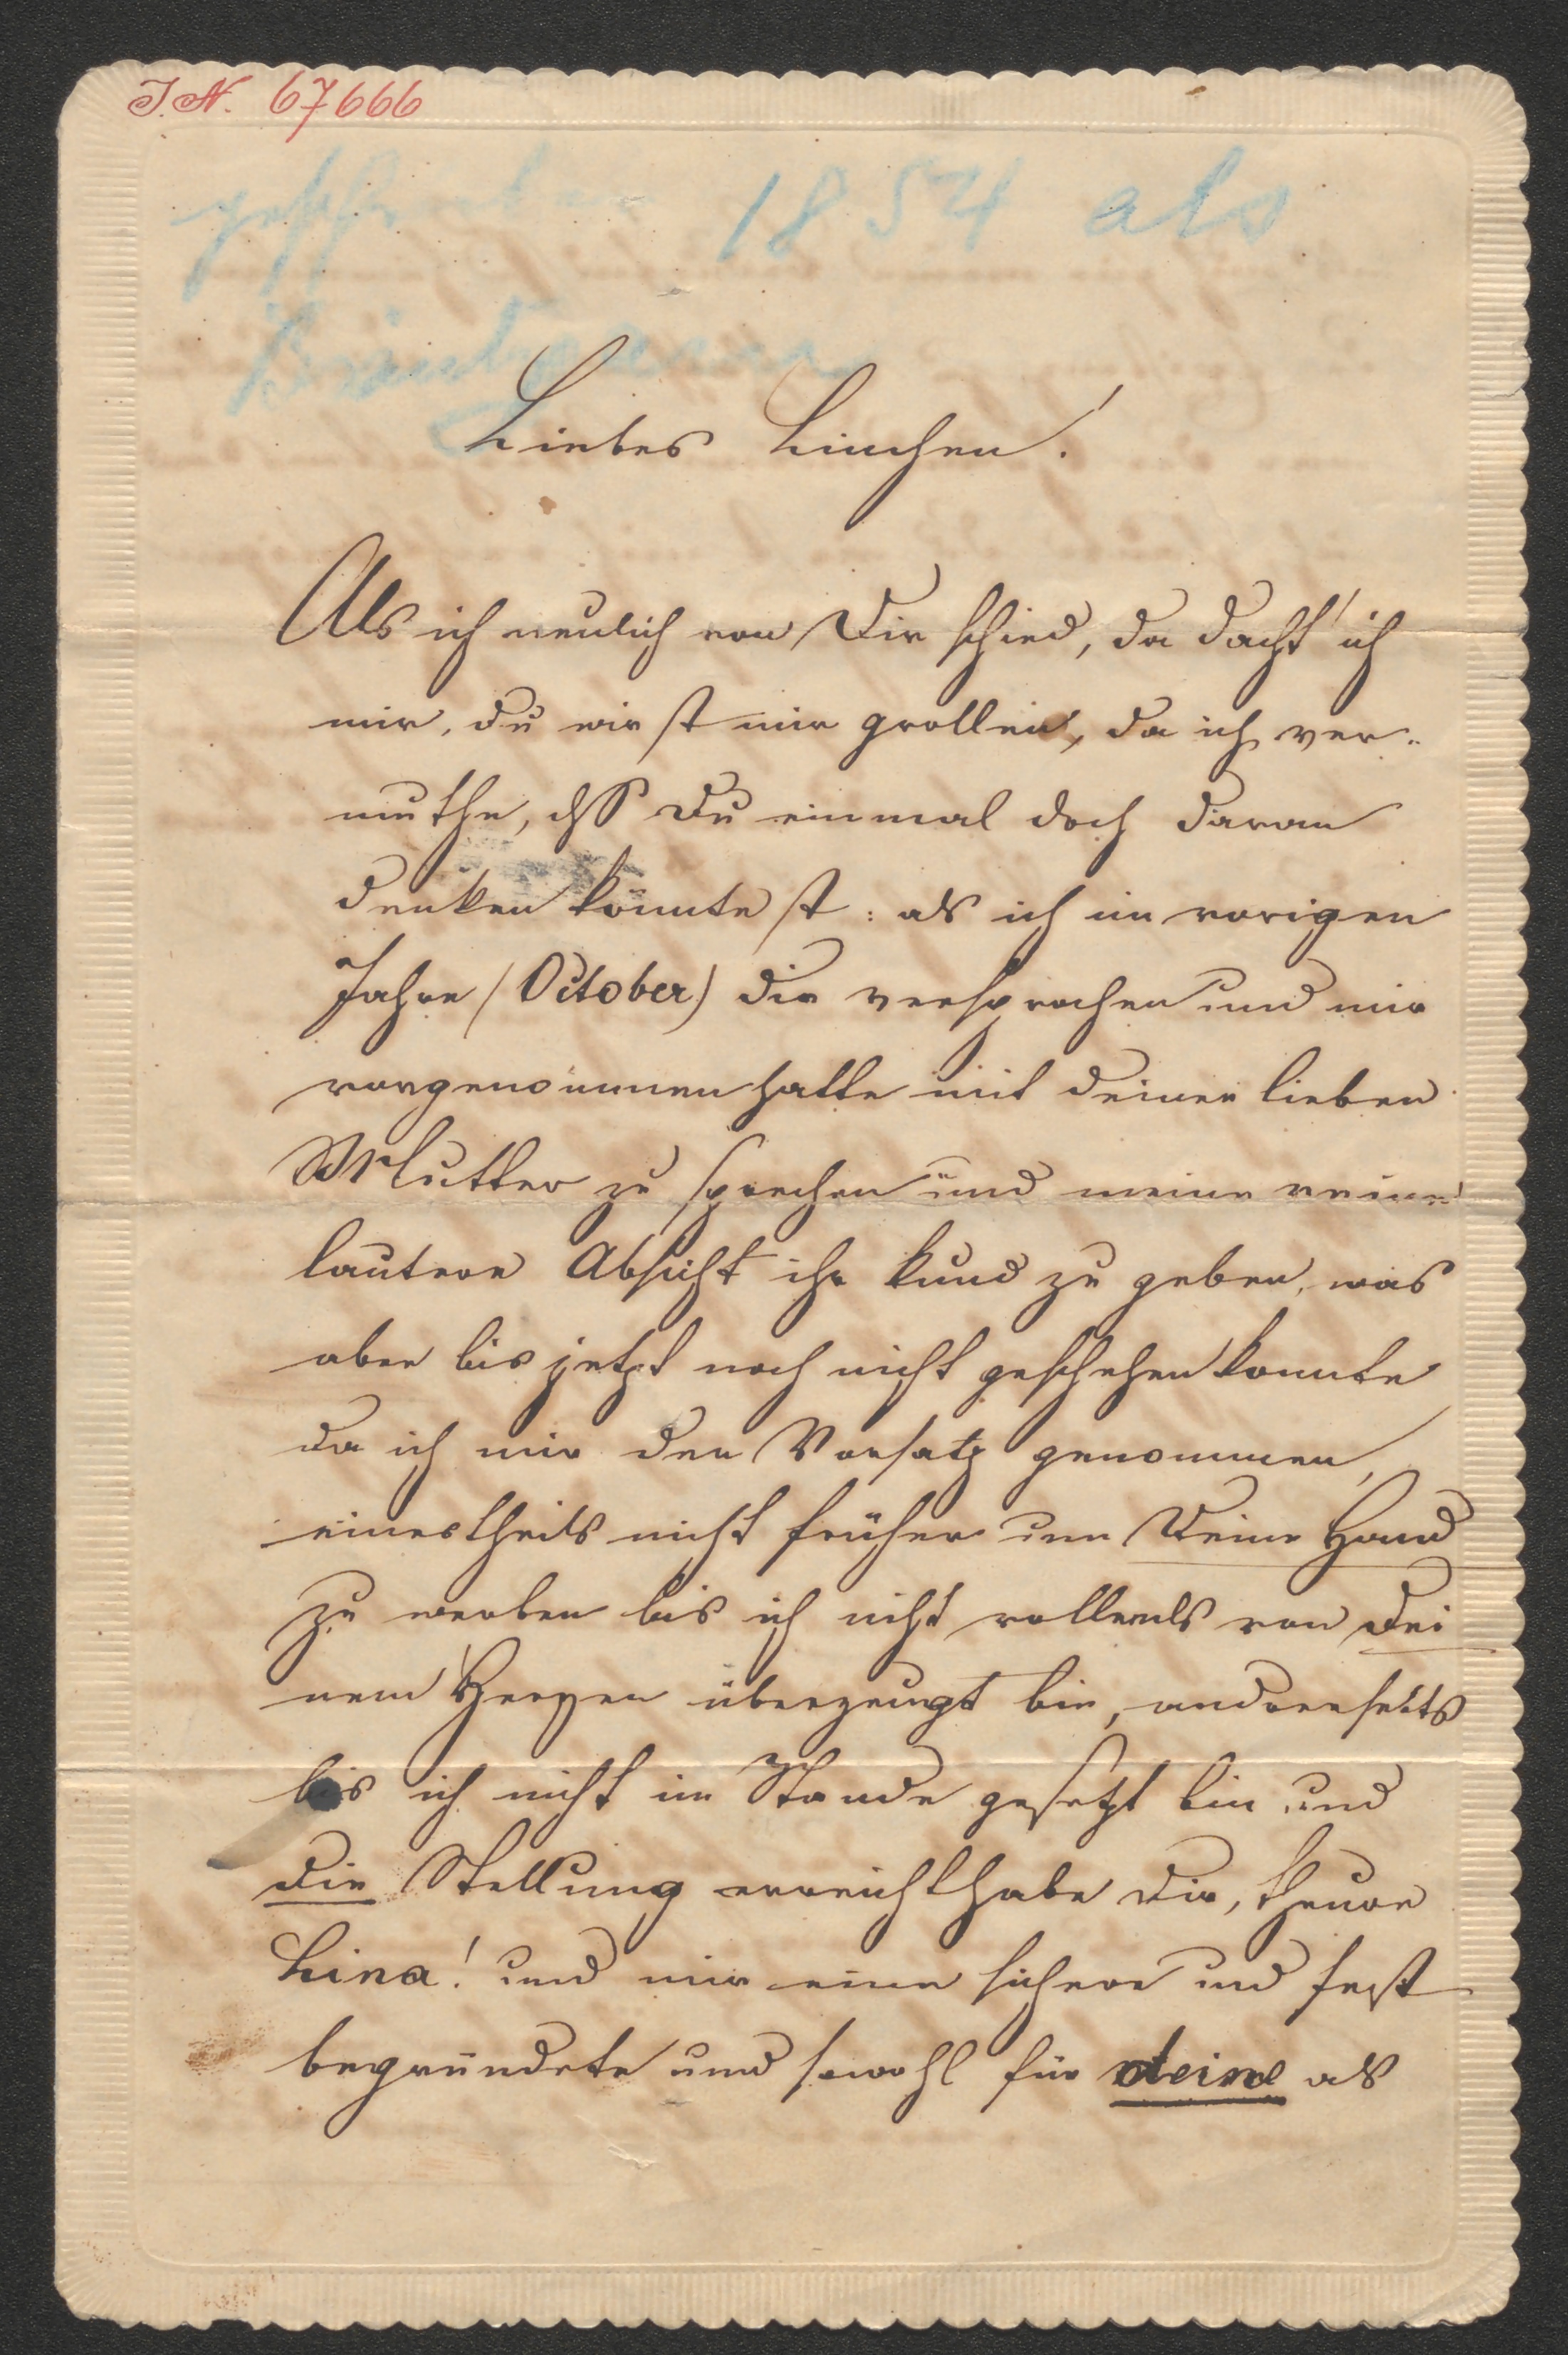 J.N. 67666
geschrieben 1854 als
Bräutigam
Liebes Linchen!
Als ich neulich von Dir schied, da dacht' ich
mir, du wirst mir grollen, da ich ver-
muthe, dß Du einmal doch daran
denken könntest: als ich im vorigen
Jahre (October) dir versprochen und mir
vorgenommen hatte mit deiner lieben
Mutter zu sprechen und meine reine
lautere Absicht ihr kund zu geben, was
aber bis jetzt noch nicht geschehen konnte
da ich mir den Vorsatz genommen,
einestheils nicht früher um Deine Hand
zu werben bis ich nicht vollends von Dei
nem Herzen überzeugt bin, anderseits
bis ich nicht im Stande gesetzt bin und
die Stellung erreicht habe Dir, theure
Lina! und mir eine sichere und fest
begründete und sowohl für deine als